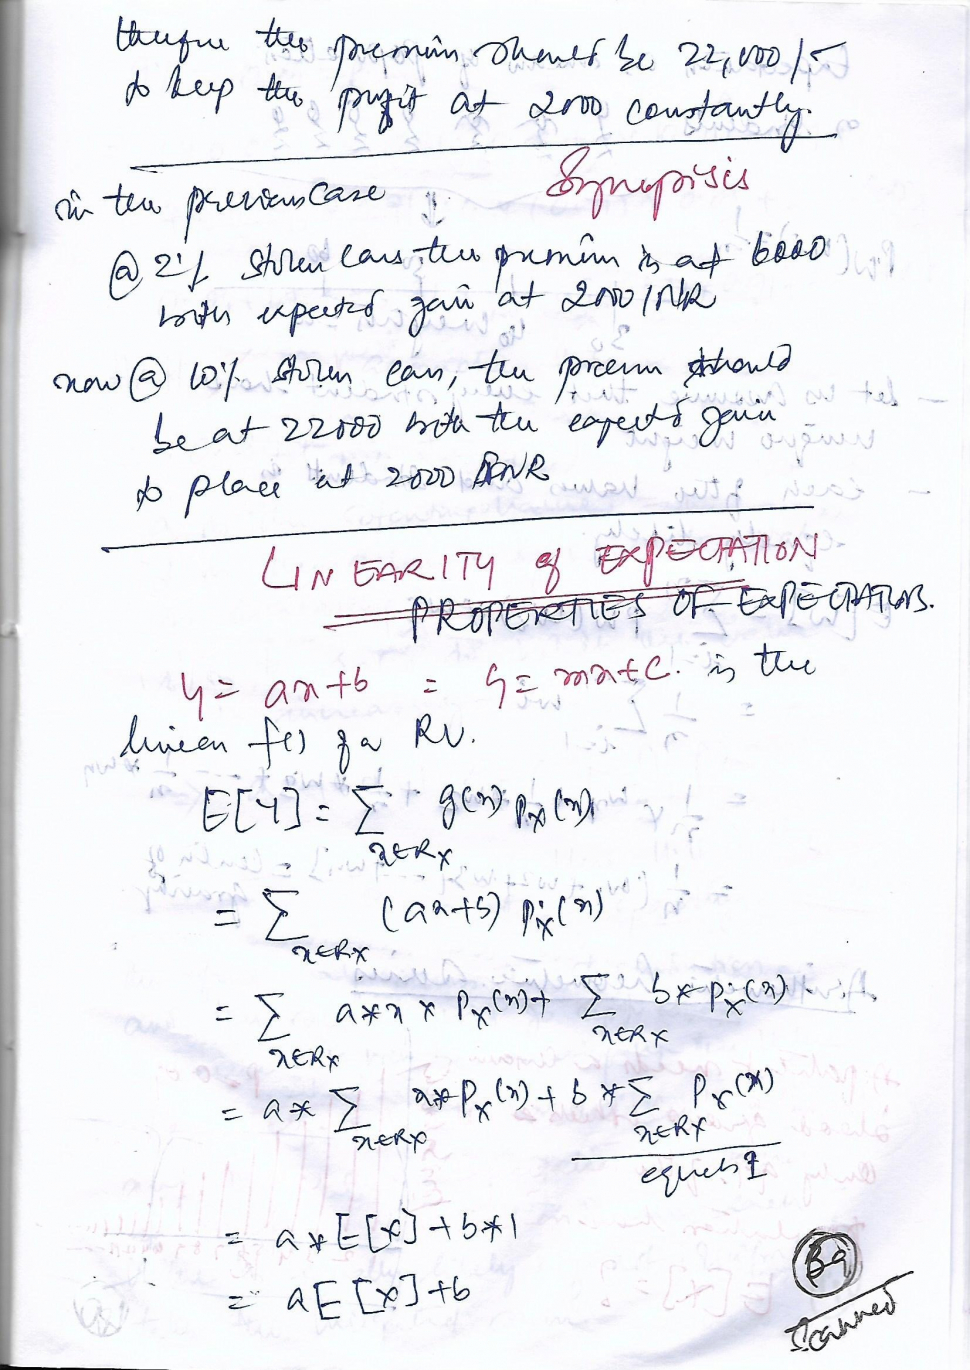 therefore the premium should be 22,000/-
to keep the profit at 2000 constantly.
Synopisis
in the previous case
@ 2% stolen cars the premium is at 6000
with expected gain at 2000 INR
now @ 10% stolen cars, the premium should
be at 22000 with the expected gain
to place at 2000 INR
LINEARITY of EXPECTATION
PROPERTIES OF EXPECTATIONS.
y = ax+b = y = mx+c. is the
linear f() of a RV.
E[Y] = ∑x∈Rx g(x) Px(x)
= ∑x∈Rx (ax+b) Px(x)
= ∑x∈Rx a*x * Px(x) + ∑x∈Rx b* Px(x)
= a* ∑x∈Rx x* Px(x) + b * ∑x∈Rx Px(x)
equals 1
= a*E[x] + b*1
= aE[x] + b
B9
Scanned